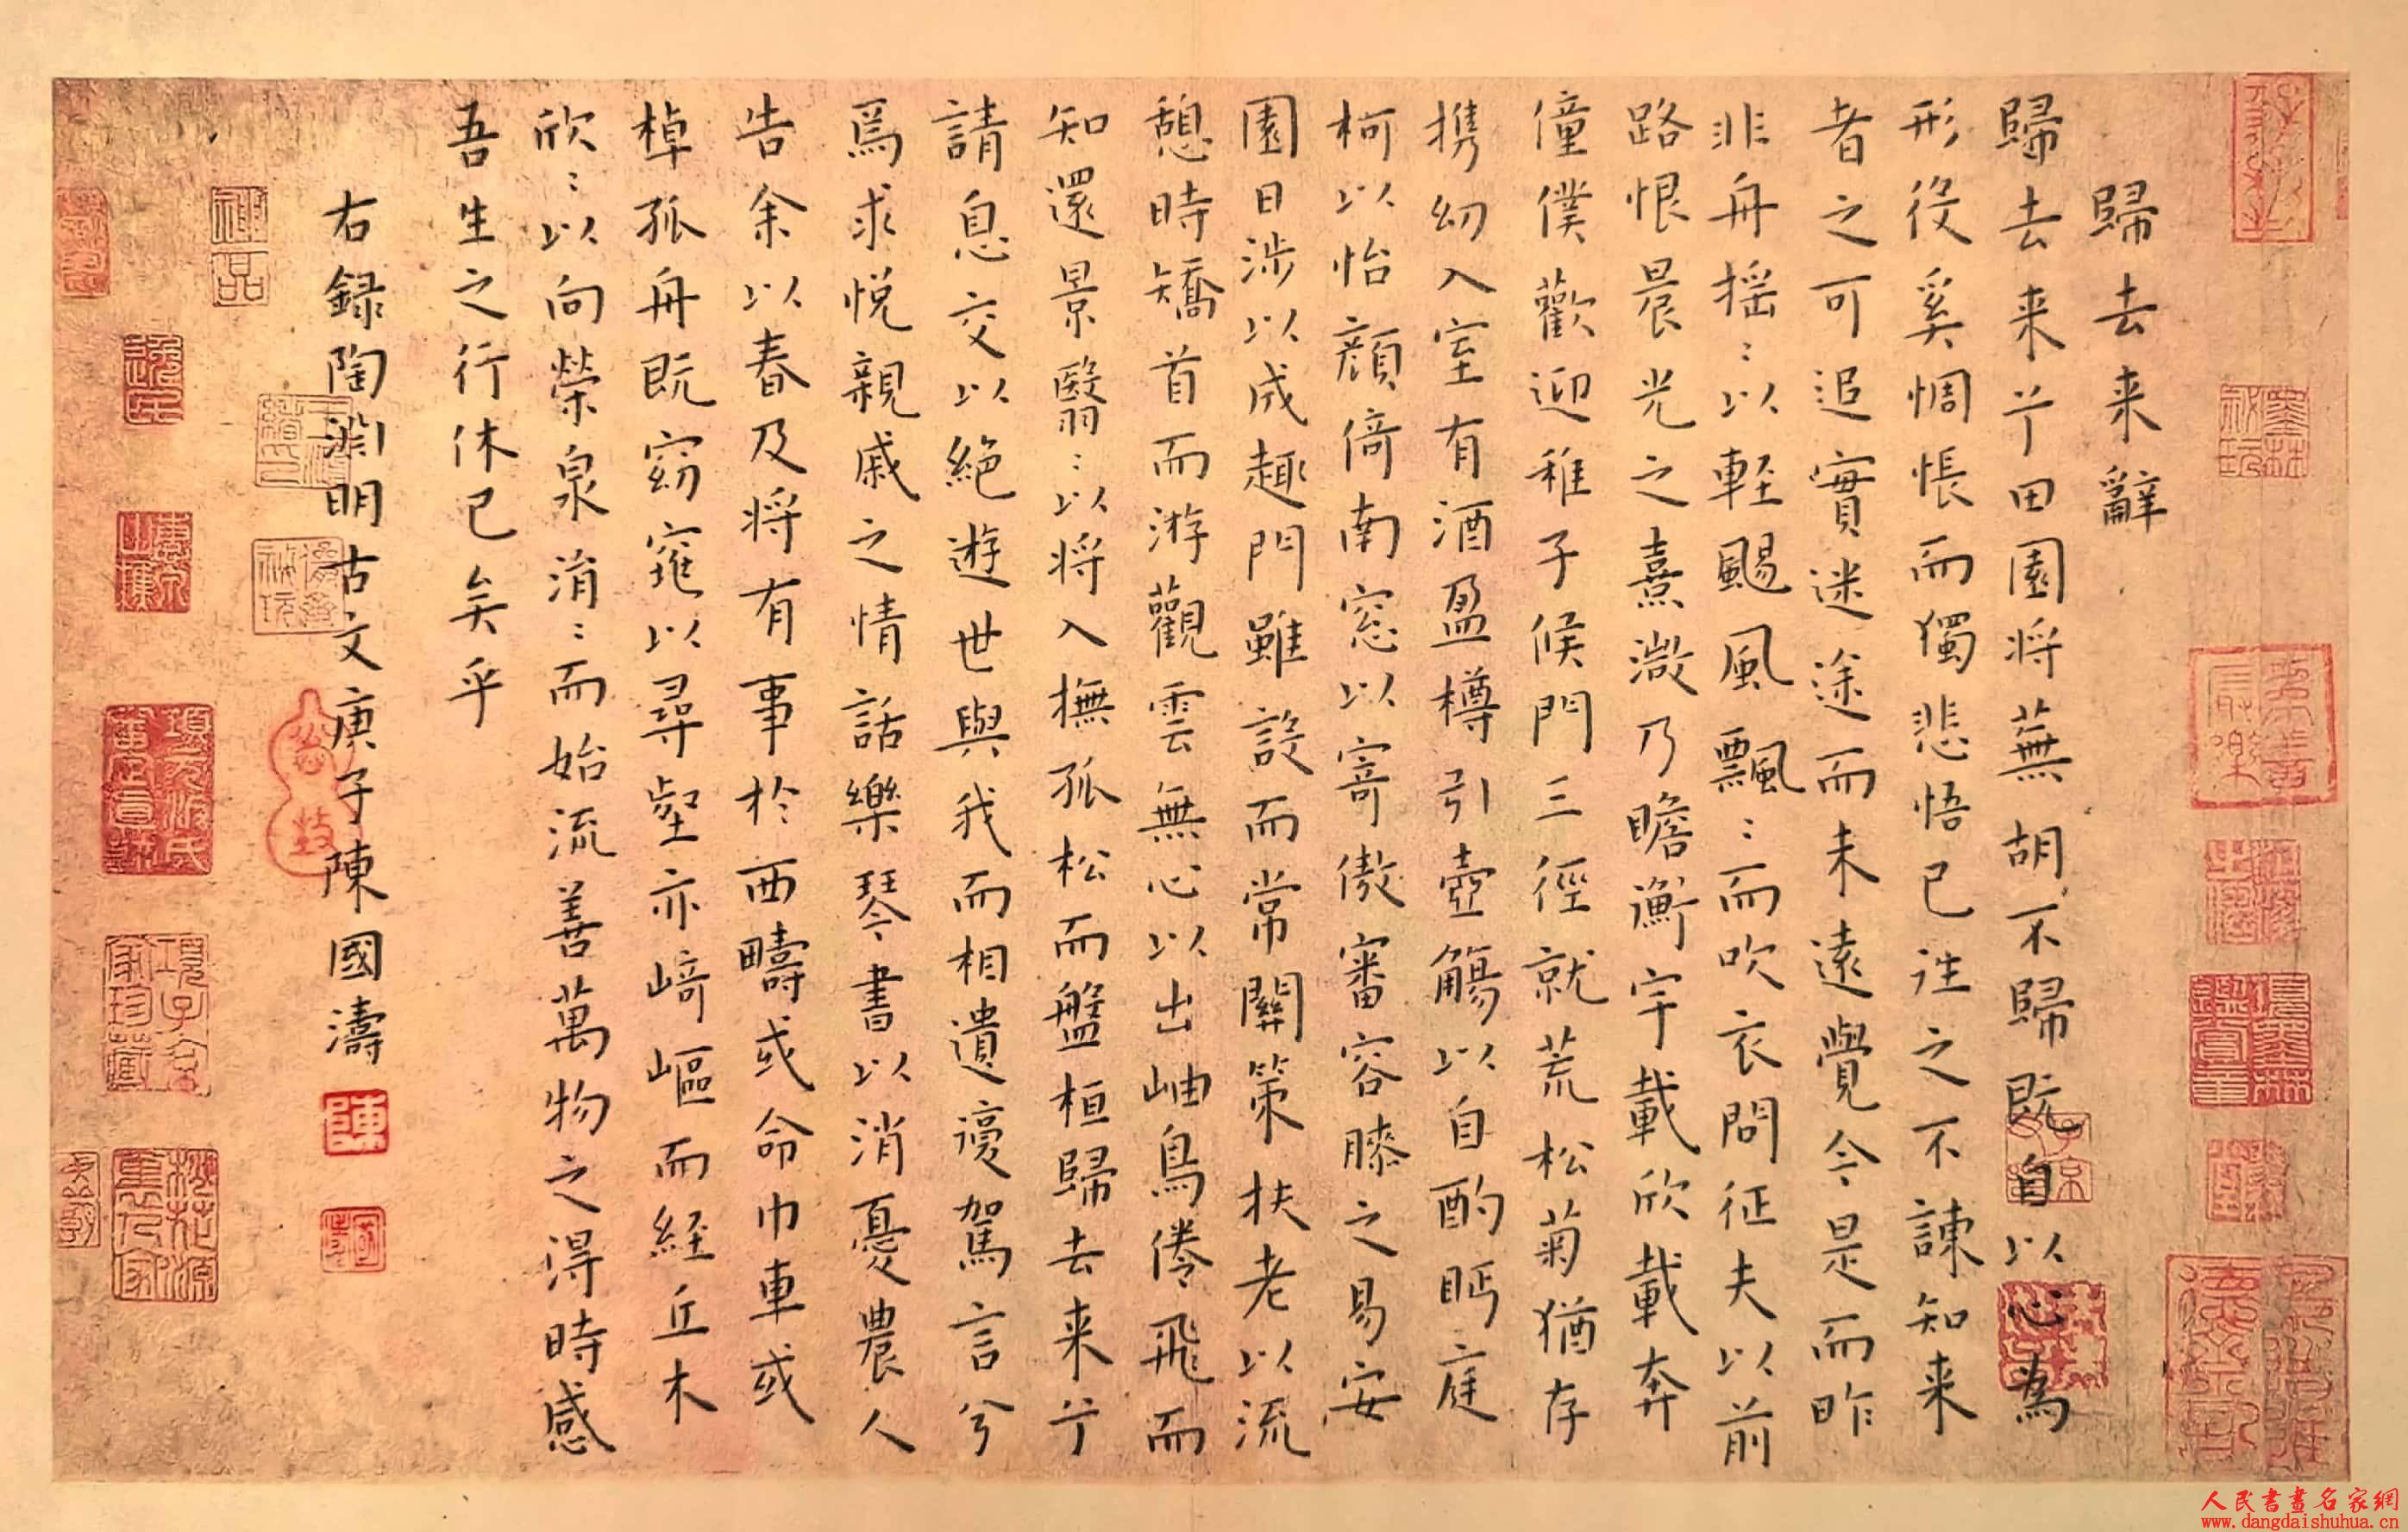 歸去来辭
歸去来兮田園将蕪胡不歸既自以心為
形役奚惆悵而獨悲悟已往之不諫知来
者之可追實迷途而未遠覺今是而昨
非舟摇〻以輕颺風飄〻而吹衣問征夫以前
路恨晨光之熹微乃瞻衡宇載欣載奔
僮僕歡迎稚子候門三徑就荒松菊猶存
携幼入室有酒盈樽引壺觴以自酌眄庭
柯以怡顔倚南窓以寄傲審容膝之易安
園日涉以成趣門雖設而常關策扶老以流
憩時矯首而游觀雲無心以出岫鳥倦飛而
知還景翳〻以将入撫孤松而盤桓歸去来兮
請息交以絶遊世與我而相遺復駕言兮
焉求悦親戚之情話樂琴書以消憂農人
告余以春及将有事於西疇或命巾車或
棹孤舟既窈窕以尋壑亦崎嶇而経丘木
欣〻以向榮泉涓〻而始流善萬物之得時感
吾生之行休已矣乎
右録陶淵明古文庚子陳國濤
陳
神品
人民書畫名家網
www.dangdaishuhua.cn